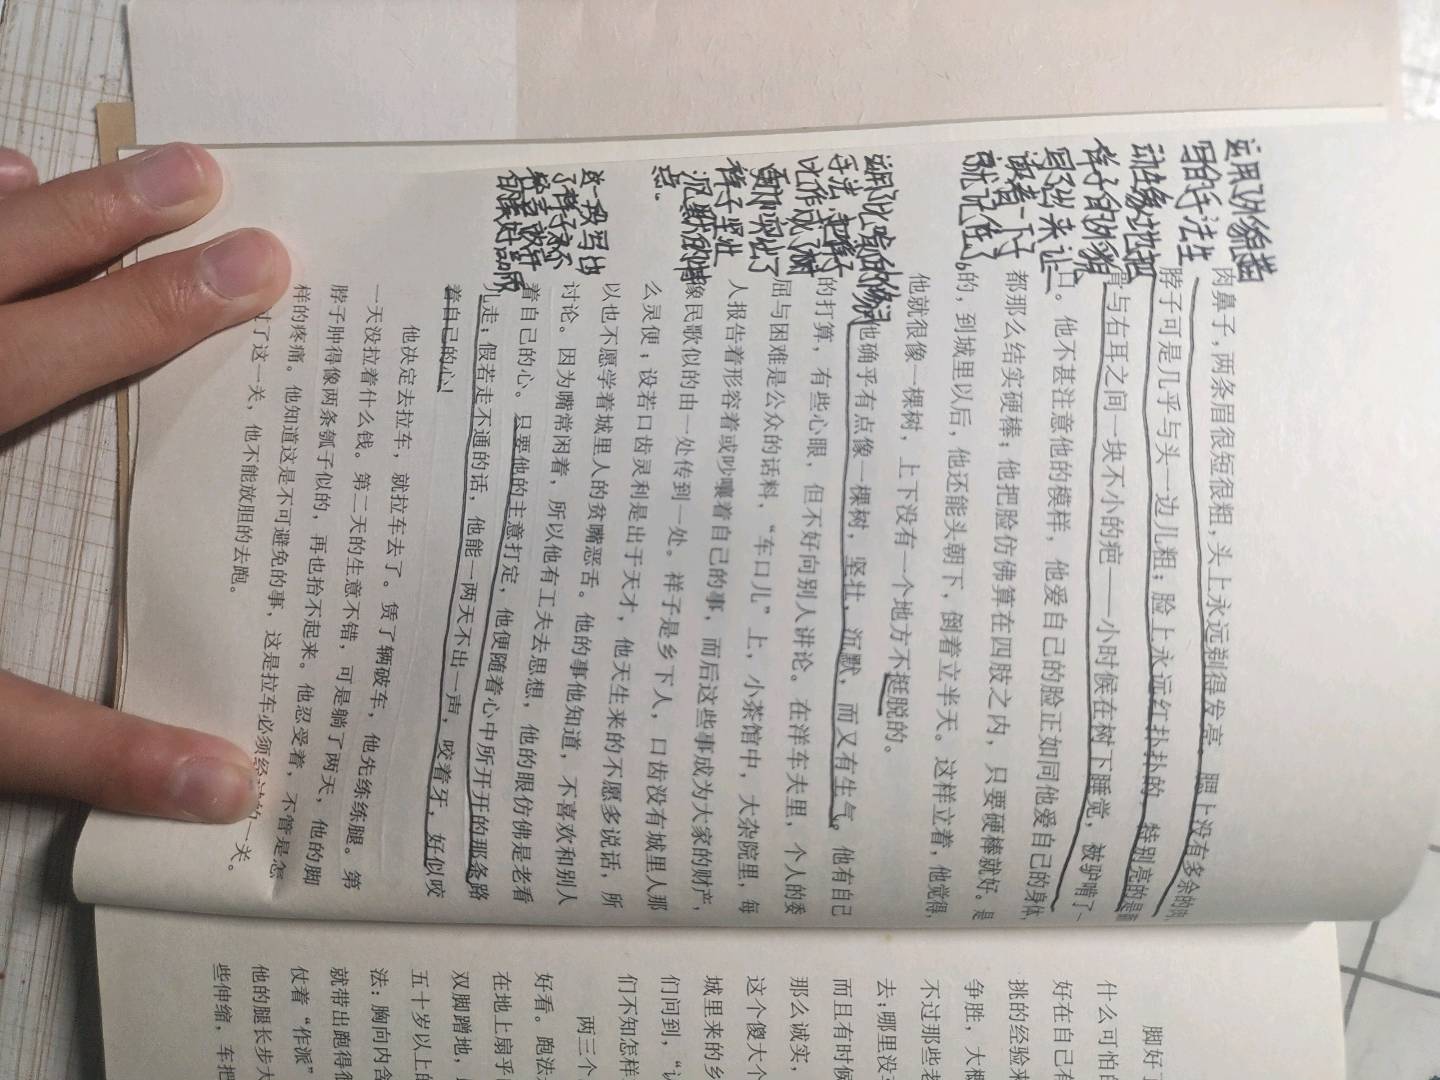 运用了外貌描
写的手法生
动生象地把
祥子的外貌
写了出来让
读者一下子
就记住了。
肉鼻子，两条眉很短很粗，头上永远剃得发亮。腮上没有多余的肉，
脖子可是几乎与头一边儿粗；脸上永远红扑扑的，特别亮的是颧
骨与右耳之间一块不小的疤——小时候在树下睡觉，被驴啃了一
口。他不甚注意他的模样，他爱自己的脸正如同他爱自己的身体，
都那么结实硬棒；他把脸仿佛算在四肢之内，只要硬棒就好。是
的，到城里以后，他还能头朝下，倒着立半天。这样立着，他觉得，
他就很像一棵树，上下没有一个地方不挺脱的。
运用了比喻的修辞
手法，把祥子
比作成了树
更加突出了
祥子坚壮
沉默的
点。
他确乎有点像一棵树，坚壮，沉默，而又有生气。他有自己
的打算，有些心眼，但不好向别人讲论。在洋车夫里，个人的委
屈与困难是公众的话料，“车口儿”上，小茶馆中，大杂院里，每
人报告着形容着或吵嚷着自己的事，而后这些事成为大家的财产，
像民歌似的由一处传到一处。祥子是乡下人，口齿没有城里人那
么灵便；设若口齿灵利是出于天才，他天生来的不愿多说话，所
以也不愿学着城里人的贫嘴恶舌。他的事他知道，不喜欢和别人
讨论。因为嘴常闲着，所以他有工夫去思想，他的眼仿佛是老看
着自己的心。只要他的主意打定，他便随着心中所开开的那条路
儿走；假若走不通的话，他能一两天不出一声，咬着牙，好似咬
着自己的心！
这一段写出
了祥子永不
他决定去拉车，就拉车去了。赁了辆破车，他先练练腿。第
一天没拉着什么钱。第二天的生意不错，可是躺了两天，他的脚
脖子肿得像两条瓠子似的，再也抬不起来。他忍受着，不管是怎
样的疼痛。他知道这是不可避免的事，这是拉车必须经过的一关。
了这一关，他不能放胆的去跑。
脚好了
什么可怕的
好在自己有
挑的经验来
争胜，大概
不过那些老
去；哪里没
而且有时候
那么诚实，
这个傻大个
城里来的乡
们问到，“认
们不知怎样
两三个
好看。跑法
在地上扇乎
双脚蹭地，
五十岁以上的
法：胸向内含
就带出跑得很
仗着“作派”
他的腿长步大
些伸缩，车把